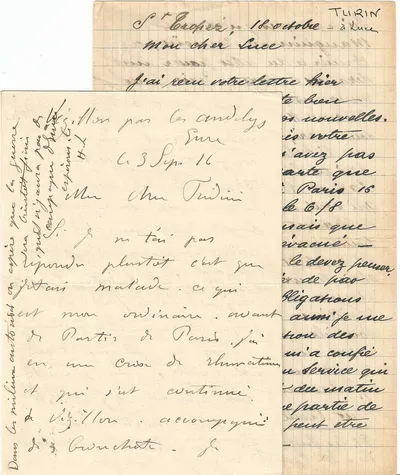 TURIN
à Luce
St Tropez, 18 octobre
Mon cher Luce
J'ai reçu votre lettre hier
te bien
os nouvelles.
ès votre
n'avez pas
arte que
Paris 16
le 6/8
mais que
évacué —
le devez penser
de pas
bligations
aussi je me
sion des
m'a confié
un service qui
du matin
e partie de
peut être
par les Andelys
Eure
ce 3 Sept 16
Mon cher
Si je ne t'ai pas
répondu plustôt c'est que
j'étais malade. ce qui
est mon ordinaire. avant
de Partir de Paris. j'ai
eu une crise de rhumatisme
et qui s'est continué
accompagné
de bronchite. Je
Dans les milieux autorisés on espère que la guerre
sera bientôt finie
espérons le
H L